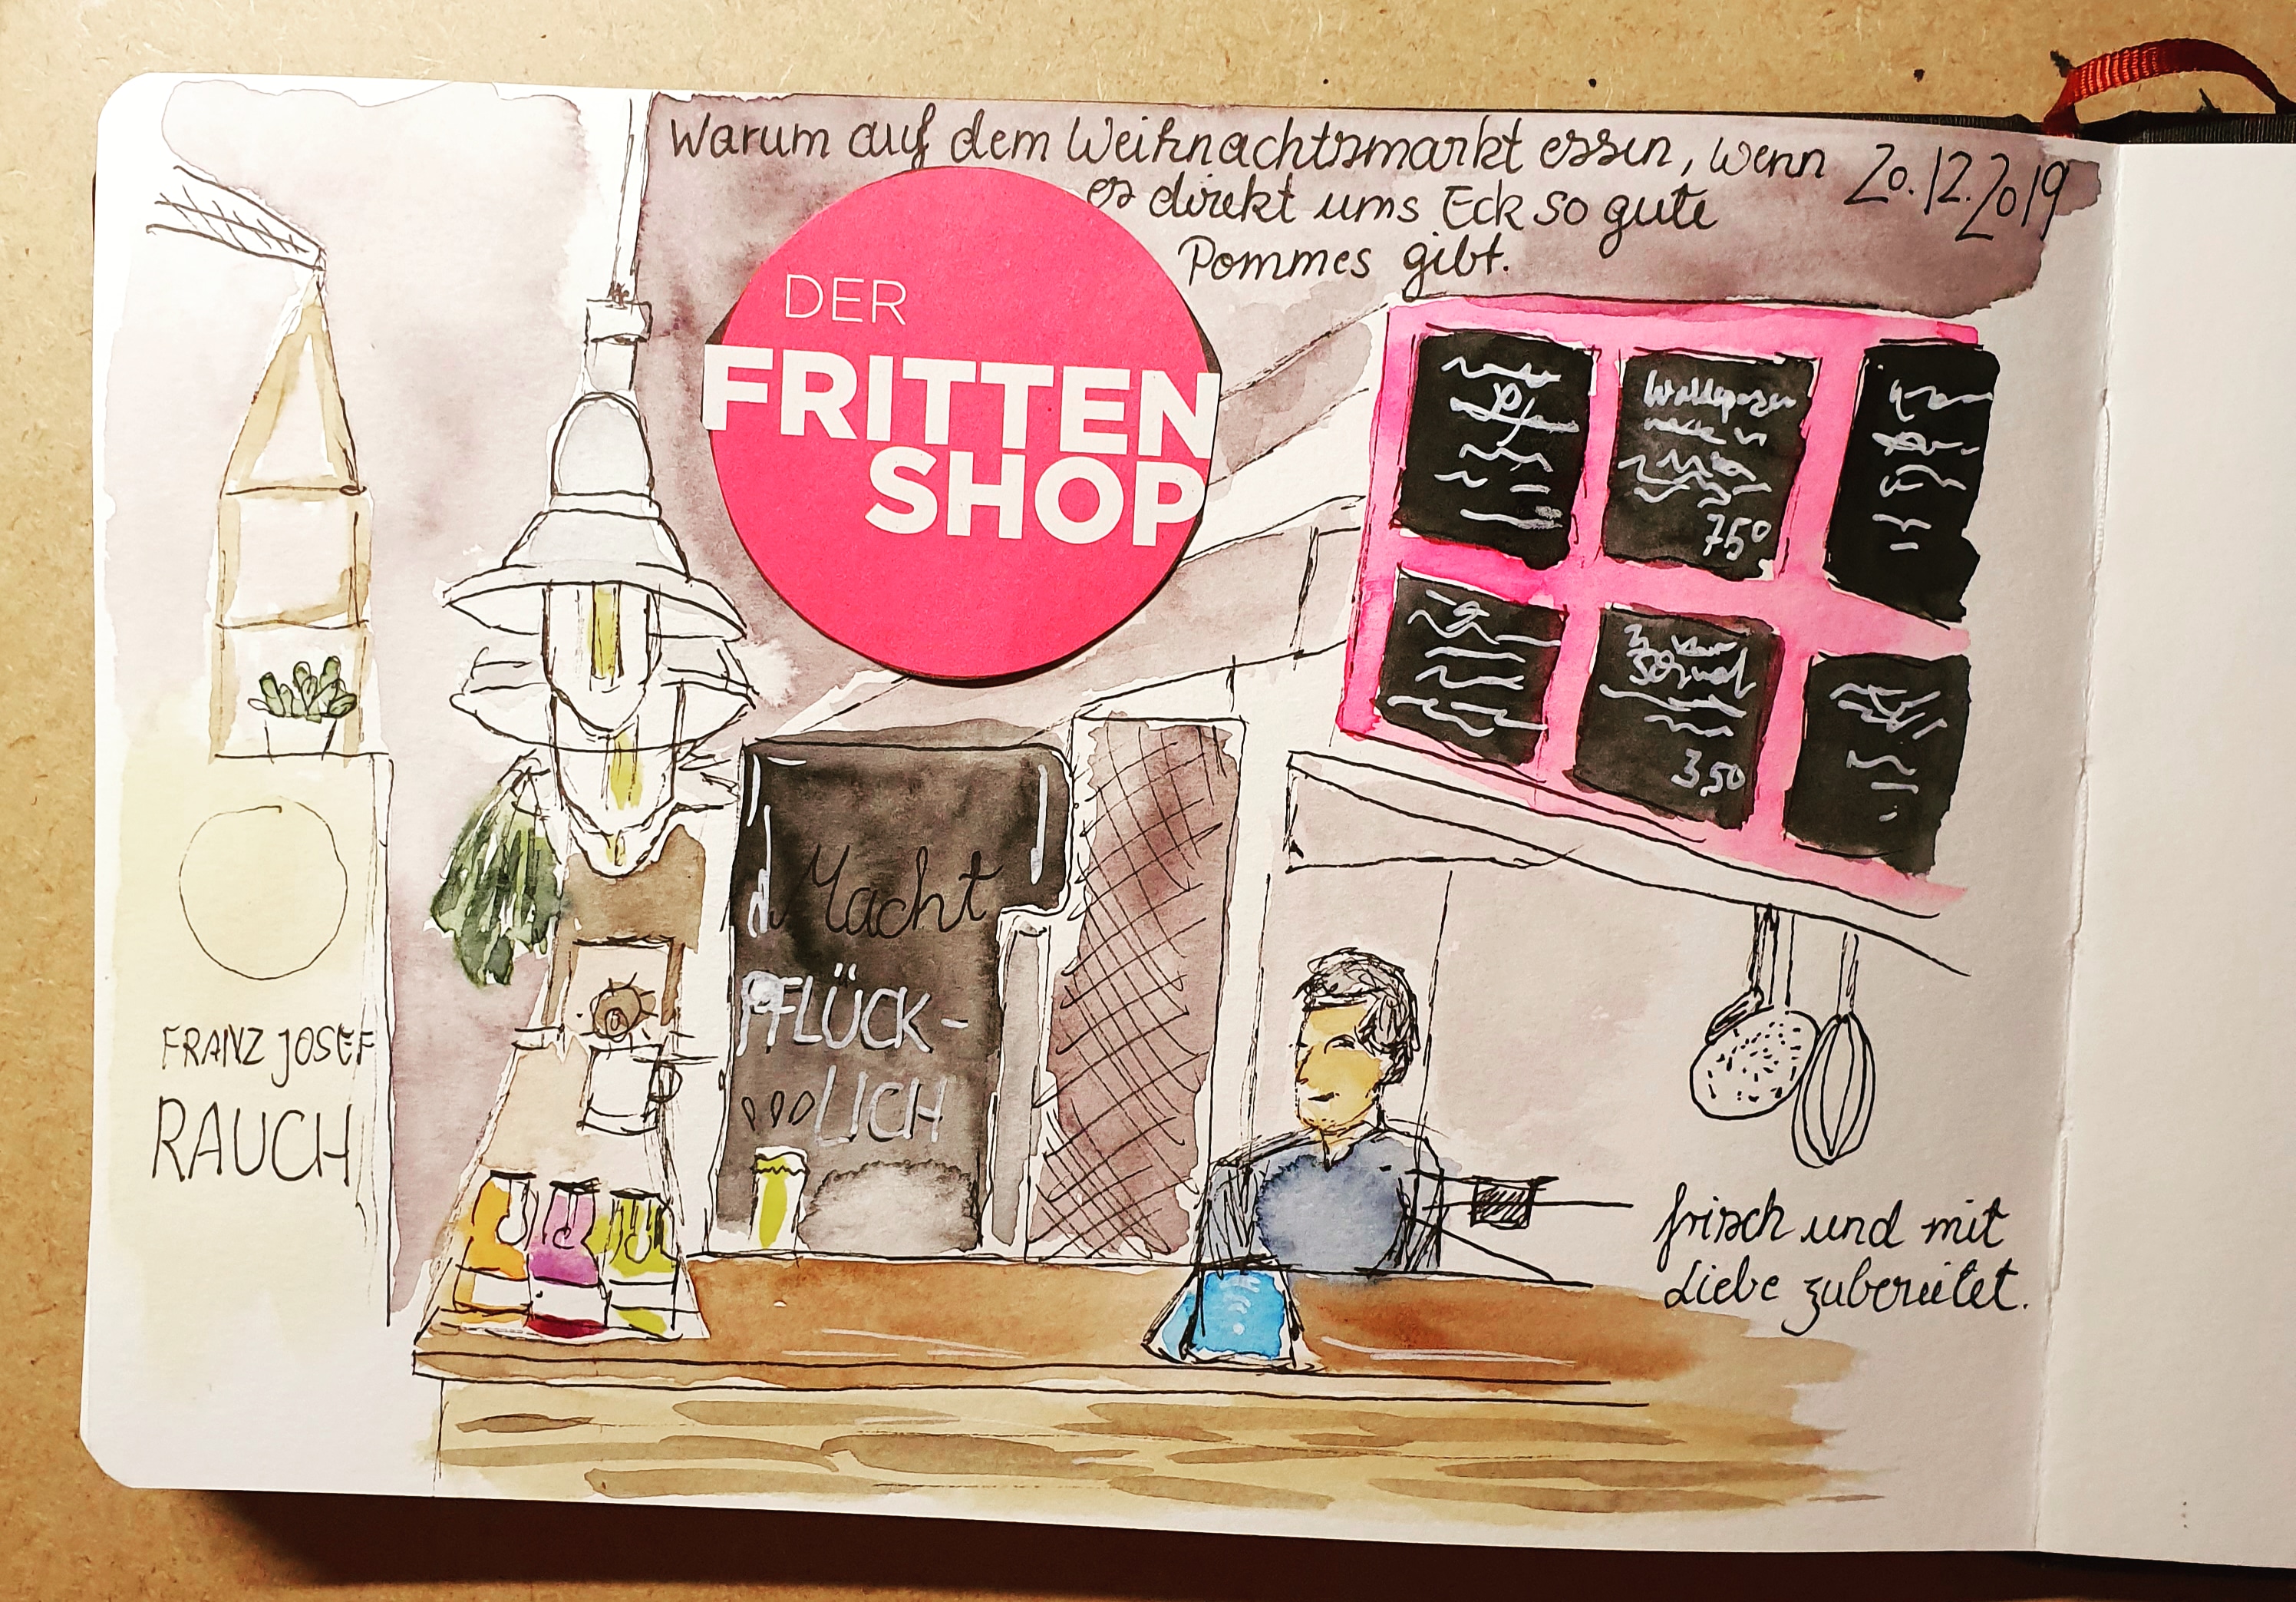 Warum auf dem Weihnachtsmarkt essen, wenn
es direkt ums Eck so gute
Pommes gibt.
20.12.2019
DER
FRITTEN
SHOP
7,50
3,50
Macht
PFLÜCK-
LICH
FRANZ JOSEF
RAUCH
frisch und mit
Liebe zubereitet.